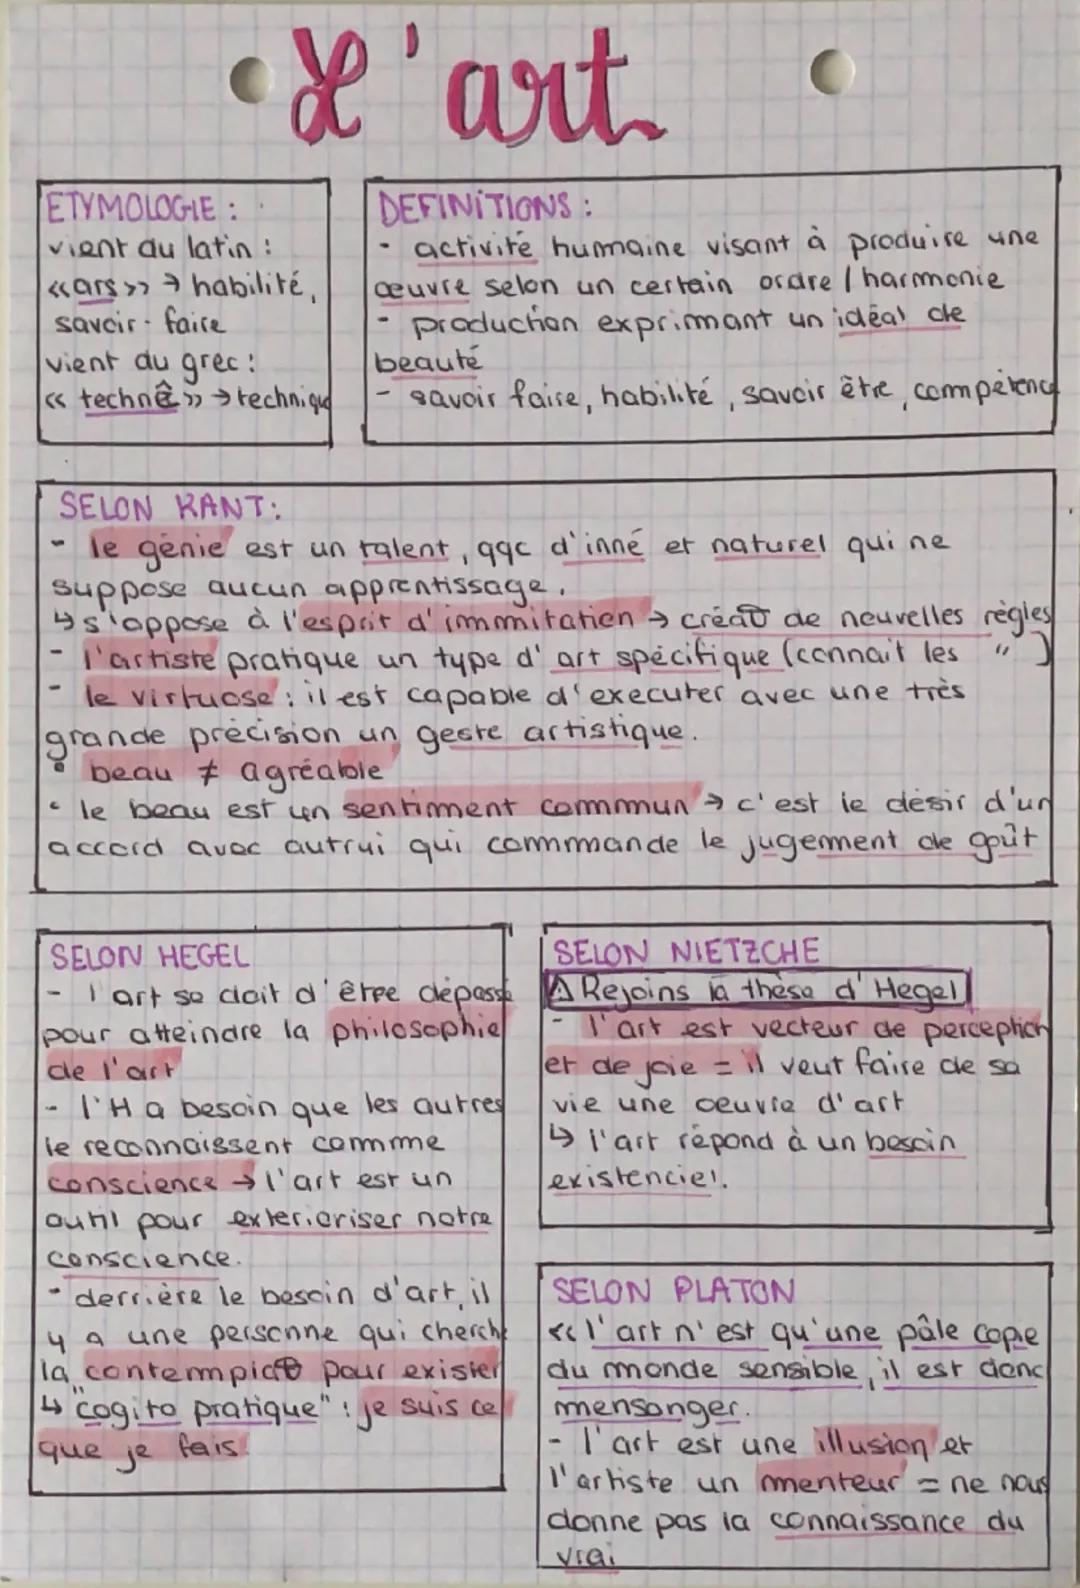 L'art
ETYMOLOGIE :
vient du latin :
«ars» → habilité,
savoir-faire
vient du grec :
« technê » → technique
DEFINITIONS :
- activité humaine visant à produire une
œuvre selon un certain ordre / harmonie
- production exprimant un idéal de
beauté
- savoir faire, habilité, savoir être, compétence
SELON KANT:
- le génie est un talent, qqc d'inné et naturel qui ne
suppose aucun apprentissage.
↳ s'oppose à l'esprit d'immitation → créa° de nouvelles règles
- l'artiste pratique un type d'art spécifique (connait les " )
- le virtuose : il est capable d'executer avec une très
grande précision un geste artistique.
• beau ≠ agréable
• le beau est un sentiment commun → c'est le désir d'un
accord avec autrui qui commande le jugement de goût
SELON HEGEL
- l'art se doit d'être dépassé
pour atteindre la philosophie
de l'art
- l'H a besoin que les autres
le reconnaissent comme
conscience → l'art est un
outil pour exterioriser notre
conscience.
- derrière le besoin d'art, il
y a une personne qui cherche
la contempla° pour exister
↳ "cogito pratique" : je suis ce
que je fais
SELON NIETZCHE
⚠ Rejoins la thèse d'Hegel
- l'art est vecteur de perception
et de joie = il veut faire de sa
vie une oeuvre d'art
↳ l'art répond à un besoin
existenciel.
SELON PLATON
« l'art n'est qu'une pâle copie
du monde sensible, il est donc
mensonger.
- l'art est une illusion et
l'artiste un menteur = ne nous
donne pas la connaissance du
vrai